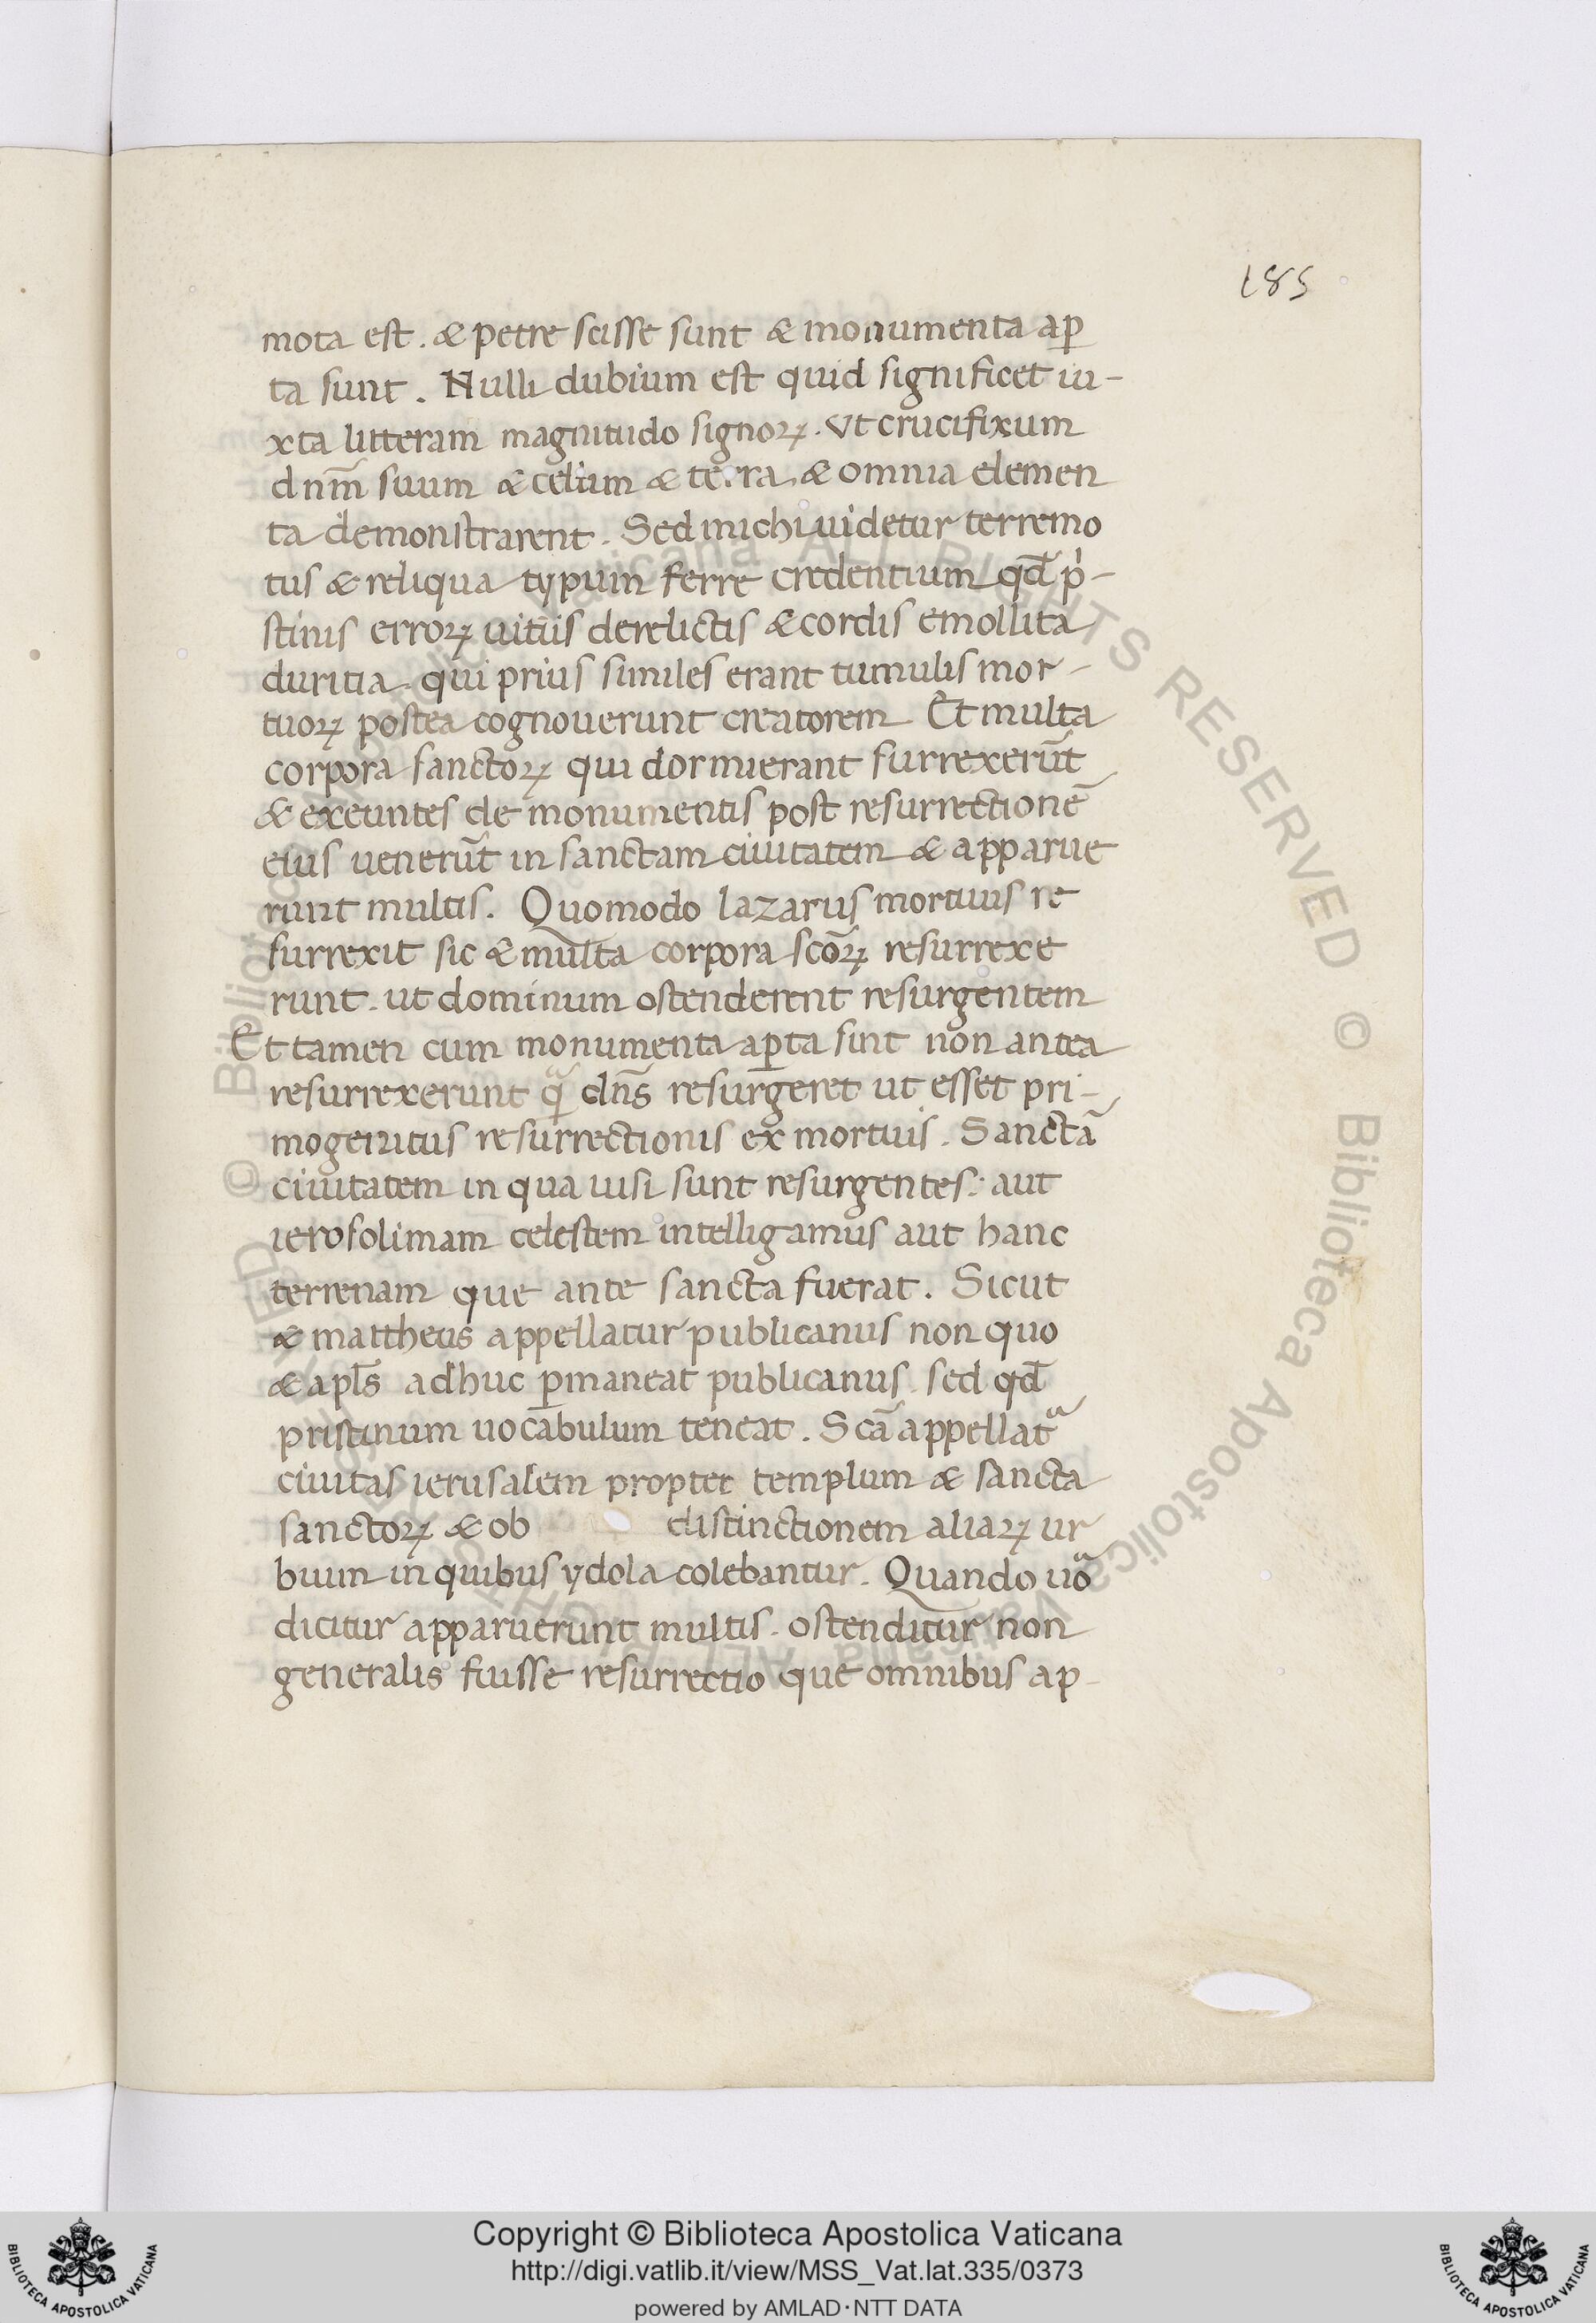 185
mota est. & petre scisse sunt & monumenta aꝑ
ta sunt. Nulli dubium est quid significet iu-
xta litteram magnitudo signoꝝ. Vt crucifixum
dnm̄ suum & celum & terra, & omnia elemen
ta demonstrarent. Sed michi uidetur terremo
tus & reliqua typum ferre credentium qd̄ pͥ-
stinis erroꝝ uitiis derelictis & cordis emollita
duritia. qui prius similes erant tumulis mor-
tuoꝝ postea cognouerunt creatorem. Et multa
corpora sanctoꝝ qui dormierant surrexerūt
& exeuntes de monumentis post resurrectionē
eius uenerūt in sanctam ciuitatem & apparue
runt multis. Quomodo lazarus mortuus re
surrexit sic & multa corpora scōꝝ resurrexe
runt. ut dominum ostenderent resurgentem
Et tamen cum monumenta aꝑta sint non antea
resurrexerunt qᷓ dn̄s resurgeret ut esset pri-
mogenitus resurrectionis ex mortuis. Sanctā
ciuitatem in qua uisi sunt resurgentes. aut
ierosolimam celestem intelligamus aut hanc
terrenam que ante sancta fuerat. Sicut
& mattheus appellatur publicanus non quo
& apl̄s adhuc ꝑmaneat publicanus. sed qd̄
pristinum uocabulum teneat. Scā appellatᷓ
ciuitas ierusalem propter templum & sancta
sanctoꝝ & ob distinctionem aliaꝝ ur
bium in quibus ydola colebantur. Quando uō
dicitur apparuerunt multis. ostenditur non
generalis fuisse resurrectio que omnibus ap-
© Biblioteca Apostolica Vaticana ALL RIGHTS RESERVED © Biblioteca Apostolica Vaticana ALL RIGHTS RESERVED
Copyright © Biblioteca Apostolica Vaticana
http://digi.vatlib.it/view/MSS_Vat.lat.335/0373
powered by AMLAD·NTT DATA
BIBLIOTECA APOSTOLICA VATICANA
BIBLIOTECA APOSTOLICA VATICANA